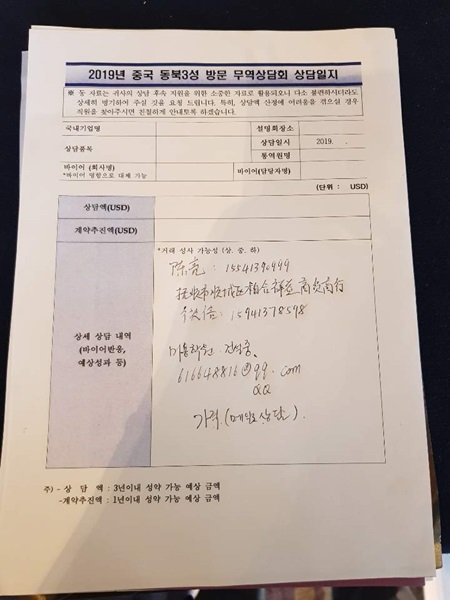 2019년 중국 동북3성 방문 무역상담회 상담일지
※ 동 자료는 귀사의 상담 후속 지원을 위한 소중한 자료로 활용되오니 다소 불편하시더라도
상세히 명기하여 주실 것을 요청 드립니다. 특히, 상담액 산정에 어려움을 겪으실 경우
직원을 찾아주시면 친절하게 안내토록 하겠습니다.
국내기업명 설명회장소
상담품목 상담일시 2019. .
통역원명
바이어 (회사명) 바이어(담당자명)
*바이어 명함으로 대체 가능
(단위 : USD)
상담액(USD)
계약추진액(USD)
*거래 성사 가능성 (상, 중, 하)
陈亮 : 15541390999
抚顺市顺城区 商贸商行
: 15941378598
상세 상담 내역
(바이어반응,
예상성과 등)
미용학원
616648816@qq.com
QQ
가격 (메일로 상담)
주) - 상 담 액 : 3년이내 성약 가능 예상 금액
-계약추진액 : 1년이내 성약 가능 예상 금액